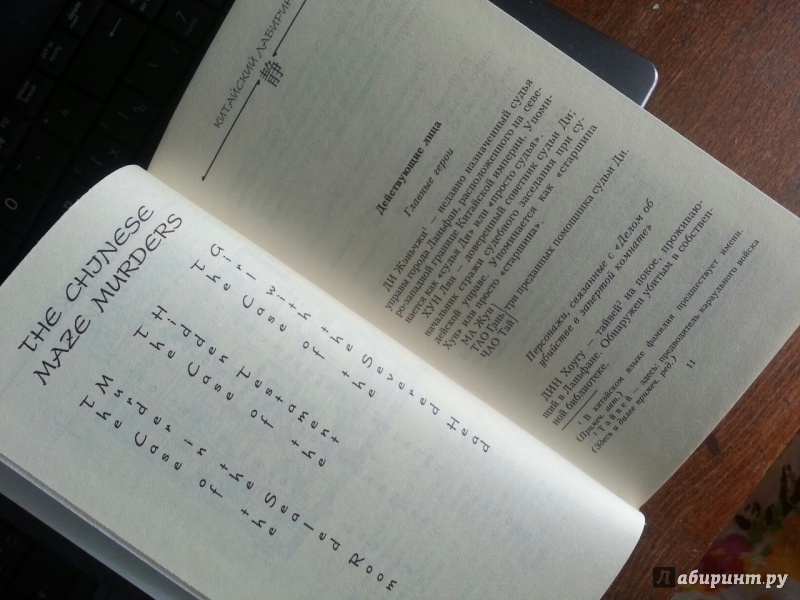 THE CHINESE
MAZE MURDERS
The Case of the
Murder in the Sealed Room
The Case of the
Hidden Testament
The Case of the
Girl with the Severed Head
КИТАЙСКИЙ ЛАБИРИНТ
静
Действующие лица
Главные герои
ДИ Жэньчжи¹ — недавно назначенный судья
управы города Ланьфан, расположенного на севе-
ро-западной границе Китайской империи. Упоми-
нается как «судья Ди» или «просто судья».
ХУН Лян — доверенный советник судьи Ди;
начальник стражи судебного заседания при су-
дейской управе. Упоминается как «старшина
Хун» или просто «старшина».
МА Жун
ТАО Гань три преданных помощника судьи Ди.
ЧАО Тай
Персонажи, связанные с «Делом об
убийстве в запертой комнате»
ДИН Хогу — тайвей² на покое, проживаю-
щий в Ланьфане. Обнаружен убитым в собствен-
ной библиотеке.
¹ В китайском языке фамилия предшествует имени.
(Примеч. авт.)
² Тайвей — здесь: предводитель караульного войска
(Здесь и далее примеч. ред.)
11
Лабиринт.ру